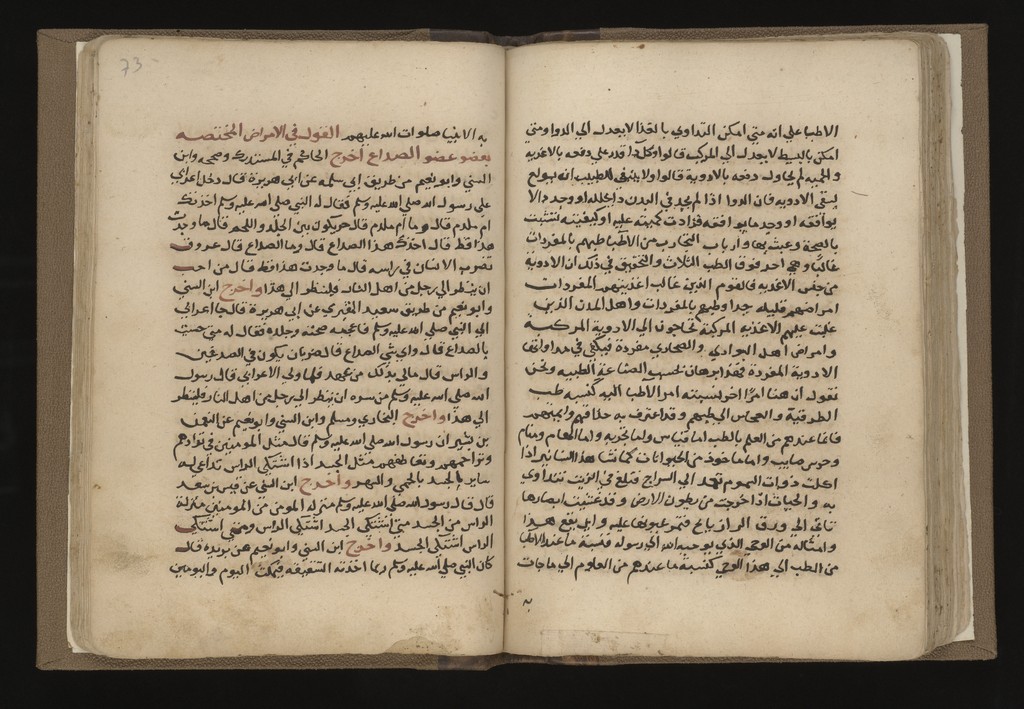 الاطبا علي انه متي امكن التداوي بالغذا لا يعدل الي الدوا ومتي
امكن بالبسيط لا يعدل الي المركب قالوا وكل دا قدر علي دفعه بالاغذيه
والحميه لم يحاول دفعه بالادوية قالوا ولا ينبغي للطبيب انه يولع
بسقي الادويه فان الدوا اذا لم يجد في البدن دا يحلله او وجد دا لا
يوافقه او وجد ما يوافقه فزادت كميته عليه او كيفيته تشبث
بالصحة وعبث بها وارباب التجارب من الاطبا طبهم بالمفردات
غالبا وهي احد فوق الطب الثلاث والتحقيق في ذلك ان الادوية
من جنس الاغذيه فالقوم الذين غالب اغذيتهم المفردات
امراضهم قليله جدا وطبهم بالمفردات واهل المدن الذين
غلبت عليهم الاغذيه المركبة يحتاجون الي الادوية المركبة
وامراض اهل البوادي والصحاري مفردة فيكفي في مداواتهم
الادوية المفردة فهذا برهان بحسب الصناعة الطبيه ونحن
نقول ان هنا امرا اخر نسبته امر الاطبا اليه كنسبه طب
الطرقية والعجايز الي طبهم وقد اعترف به حذاقهم وايمتهم
فان ما عندهم من العلم بالطب اما قياس واما تجربه واما الهام ومنام
وحدس صايب واما ماخوذ من الحيوانات كما نشاهد السنانير اذا
اكلت ذوات السموم تعمد الي السراج فتلغ في الزيت تتداوي
به والحيات اذا خرجت من بطون الارض وقد غشيت ابصارها
تاتي الي ورق الرازيانج فتمر عيونها عليه واين يقع هذا
وامثاله من الوحي الذي يوحيه الله الي رسوله فنسبة ما عند الاطبا
من الطب الي هذا الوحي كنسبه ما عندهم من العلوم الي ما جات
به
73
به الانبيا صلوات الله عليهم القول في الامراض المختصه
بعضو عضو الصداع اخرج الحاكم في المستدرك وصححه وابن
السني وابو نعيم من طريق ابي سلمه عن ابي هريرة قال دخل اعرابي
علي رسول الله صلي الله عليه وسلم فقال له النبي صلي الله عليه وسلم اخذتك
ام ملدم قال وما ام ملدم قال حر يكون بين الجلد واللحم قال ما وجدت
هذا قط قال اخذك هذا الصداع قال وما الصداع قال عروق
تضرب الانسان في راسه قال ما وجدت هذا قط قال من احب
ان ينظر الي رجل من اهل النار فلينظر الي هذا واخرج ابن السني
وابو نعيم من طريق سعيد المقبري عن ابي هريرة قال جا اعرابي
الي النبي صلي الله عليه وسلم فاعجبه صحته وجلده فقال له متي حسيت
بالصداع قال واي شي الصداع قال ضربان يكون في الصدغين
والراس قال مالي بذلك من عهد فلما ولي الاعرابي قال رسول
الله صلي الله عليه وسلم من سره ان ينظر الي رجل من اهل النار فلينظر
الي هذا واخرج البخاري ومسلم وابن السني وابو نعيم عن النعمن
بن بشير ان رسول الله صلي الله عليه وسلم قال مثل المومنين في توادهم
وتراحمهم وتعاطفهم مثل الجسد اذا اشتكي الراس تداعي له
ساير الجسد بالحمي والسهر واخرج ابن السني عن قيس بن سعد
قال قال رسول الله صلي الله عليه وسلم منزله المومن من المومنين منزلة
الراس من الجسد متي اشتكي الجسد اشتكي الراس ومتي اشتكي
الراس اشتكي الجسد واخرج ابن السني وابو نعيم عن بريدة قال
كان النبي صلي الله عليه وسلم ربما اخذته الشقيقه فيمكث اليوم واليومين